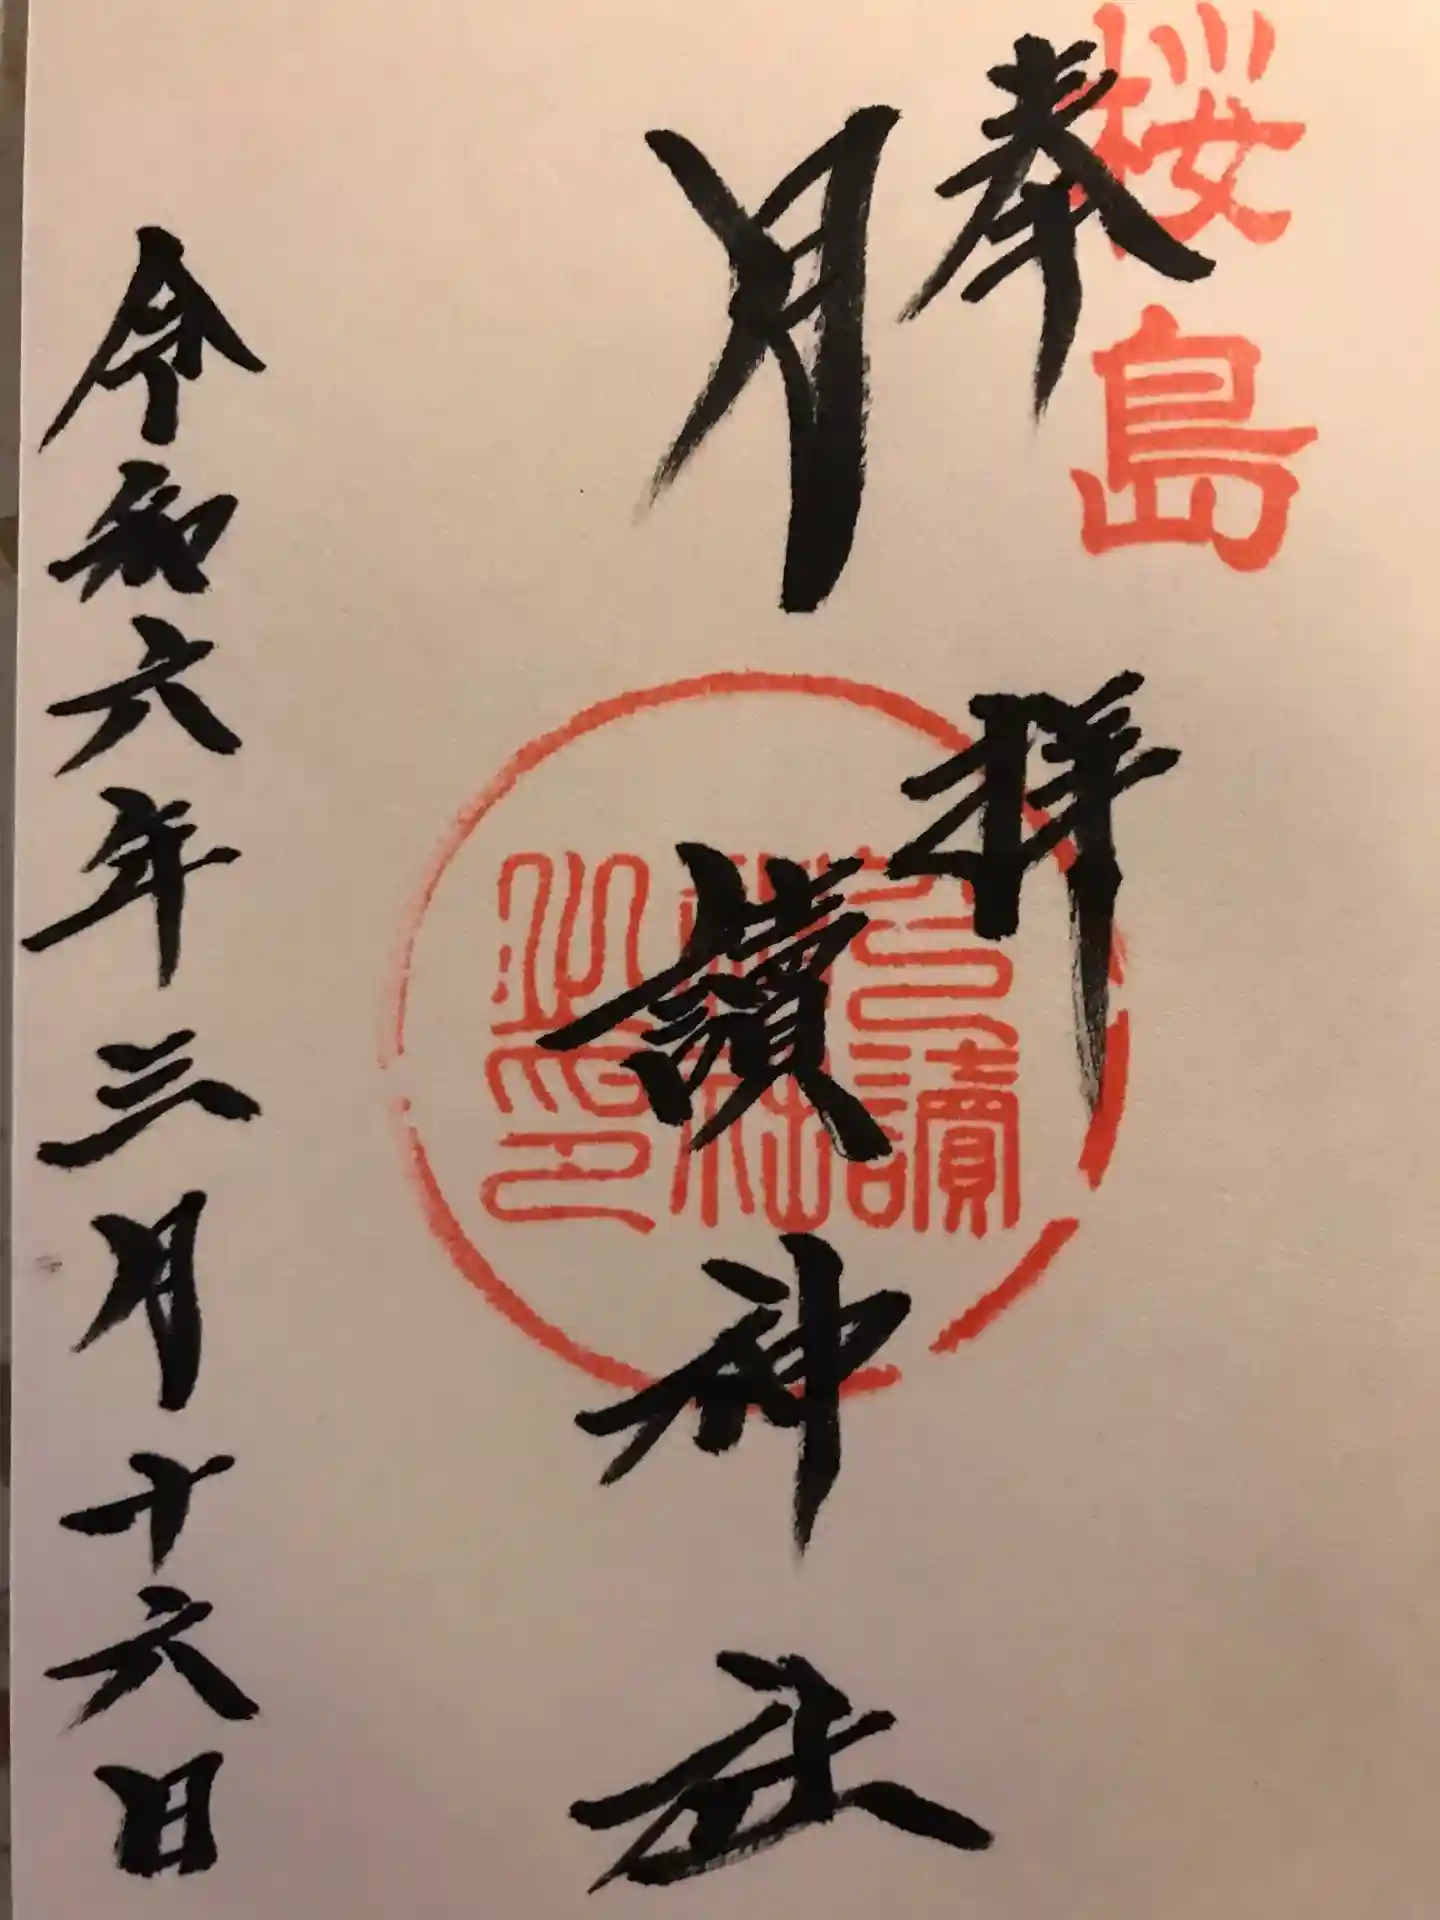 桜島
奉拝
月讀神社
月讀神社之印
令和六年三月十六日